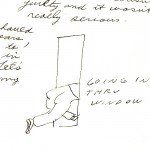 guilty and it wasn't
really serious.
to!
in
let's
my
GOING IN
THRU
WINDOW